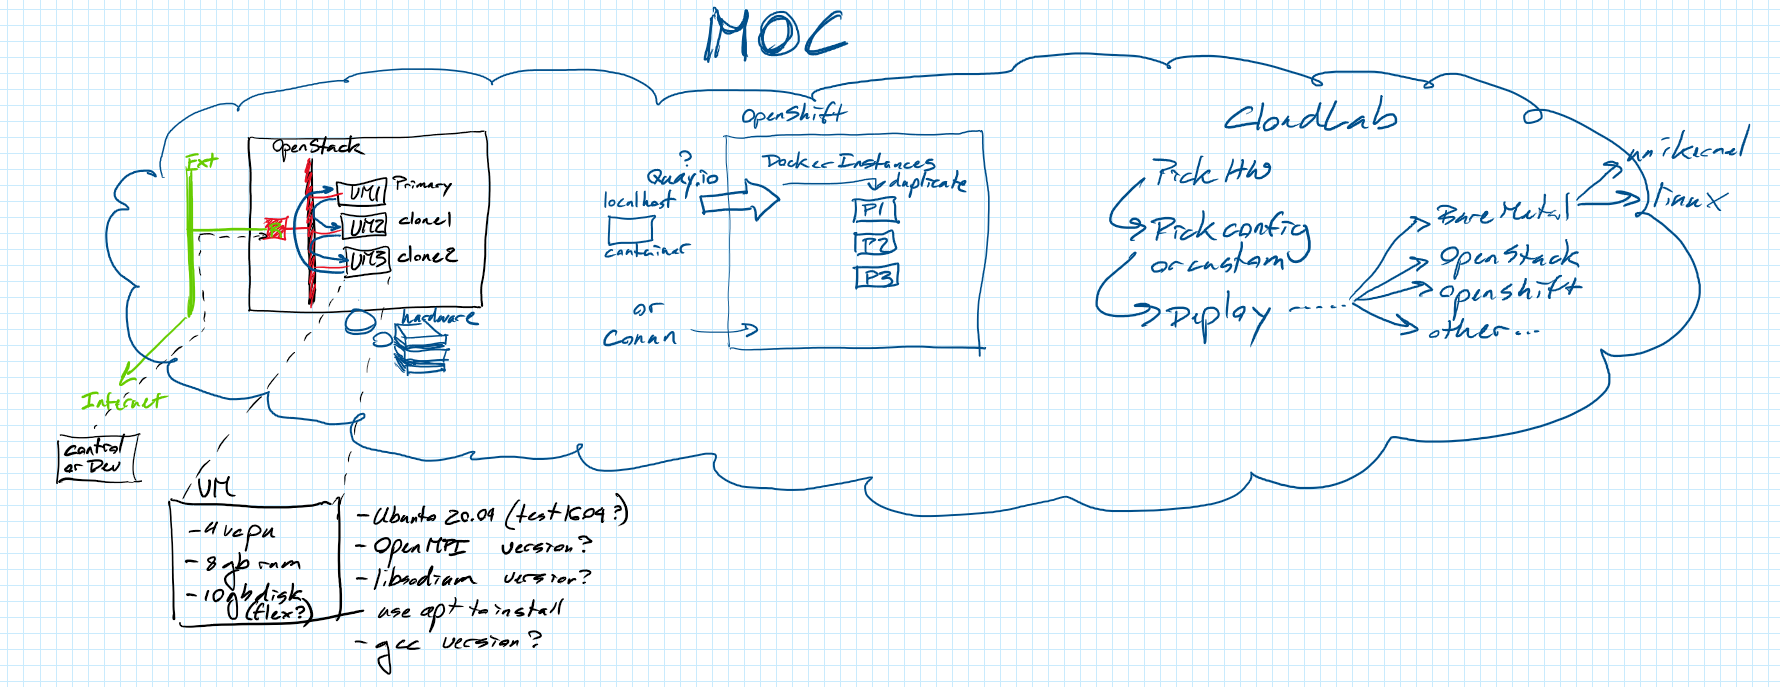 MOC
Ext
OpenStack
VM1 Primary
VM2 clone1
VM3 clone2
hardware
Internet
control
or Dev
VM
- 4 vcpu
- 8gb ram
- 10gb disk
(flex?)
- Ubuntu 20.04 (test 16.04?)
- OpenMPI version?
- libsodium version?
- use apt to install
- gcc version?
OpenShift
?
Quay.io
localhost
container
or
Conan
Docker Instances
duplicate
P1
P2
P3
CloudLab
Pick HW
Pick config
or custom
Deploy ......
Bare Metal
OpenStack
Openshift
other...
unikernel
linux